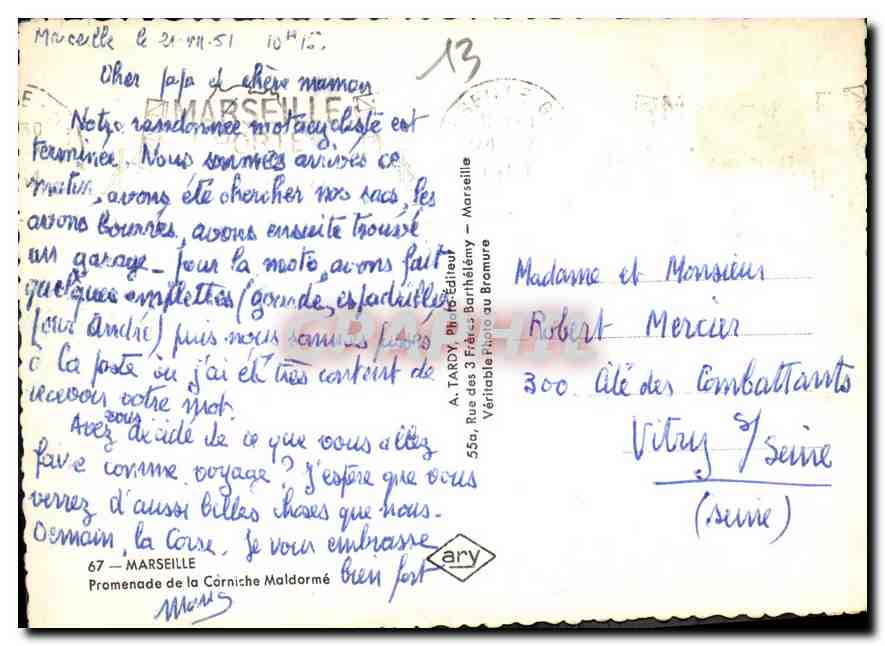 Marseille le 21-VII-51 10H15
13
Cher papa et chère maman
MARSEILLE
Notre randonnée motocycliste est
terminée. Nous sommes arrivés ce
matin, avons été chercher nos sacs, les
avons bourrés, avons ensuite trouvé
un garage - pour la moto, avons fait
quelques emplettes (gourde, espadrilles
pour André) puis nous sommes passés
à la poste où j'ai été très content de
recevoir votre mot.
Avez vous décidé de ce que vous allez
faire comme voyage? J'espère que vous
verrez d'aussi belles choses que nous.
Demain, la Corse. Je vous embrasse
bien fort
67 — MARSEILLE
Promenade de la Corniche Maldormé
A. TARDY, Photo-Editeur
55a, Rue des 3 Frères Barthélémy — Marseille
Véritable Photo au Bromure
ary
Madame et Monsieur
Robert Mercier
300. Cité des Combattants
Vitry s/ Seine
(Seine)